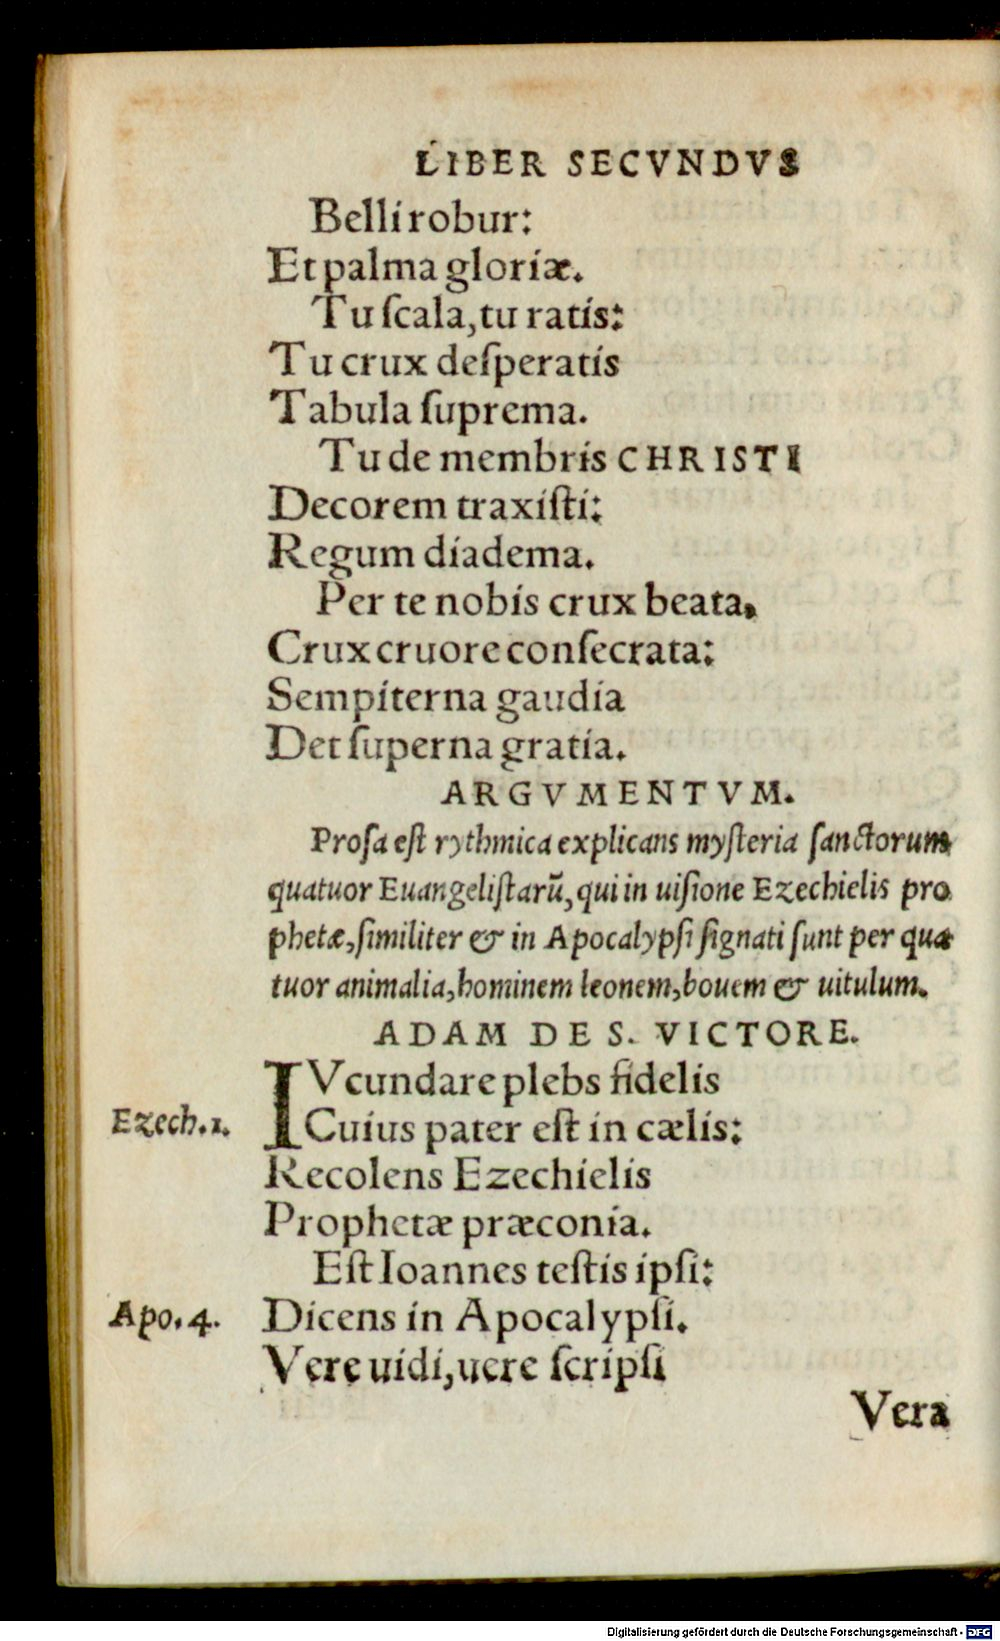 LIBER SECVNDVS
Belli robur:
Et palma gloriæ.
Tu ſcala, tu ratis:
Tu crux deſperatis
Tabula ſuprema.
Tu de membris CHRISTI
Decorem traxiſti:
Regum diadema.
Per te nobis crux beata,
Crux cruore conſecrata:
Sempiterna gaudia
Det ſuperna gratia.
ARGVMENTVM.
Proſa eſt rythmica explicans myſteria ſanctorum
quatuor Euangeliſtarũ, qui in uiſione Ezechielis pro
phetæ, ſimiliter & in Apocalypſi ſignati ſunt per qua
tuor animalia, hominem leonem, bouem & uitulum.
ADAM DE S. VICTORE.
IVcundare plebs fidelis
Ezech.1. Cuius pater eſt in cælis:
Recolens Ezechielis
Prophetæ præconia.
Eſt Ioannes teſtis ipſi:
Apo.4. Dicens in Apocalypſi.
Vere uidi, uere ſcripſi
Vera
Digitalisierung gefördert durch die Deutsche Forschungsgemeinschaft - DFG